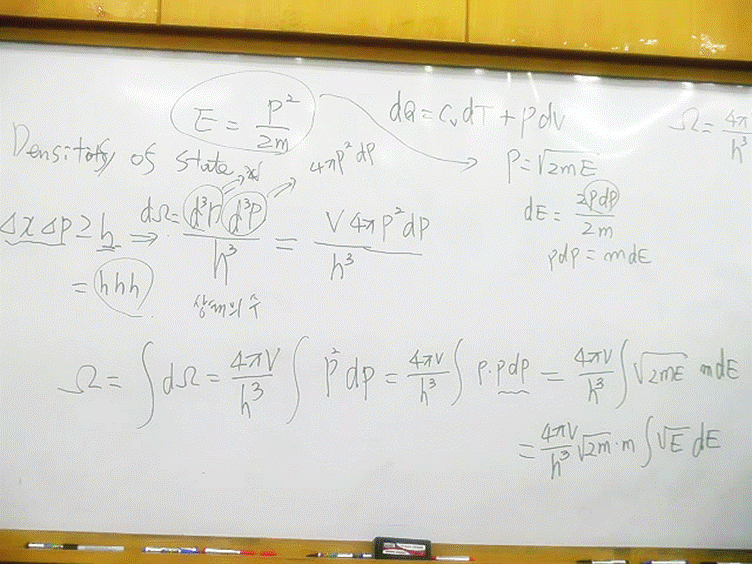 E = p²/2m
dQ = CᵥdT + pdV
Ω = 4π/h³
Density of state
4πp²dp
p = √2mE
ΔxΔp ≥ h ⇒ dΩ = d³r d³p / h³ = V4πp²dp / h³
dE = 2pdp/2m
= hhh
pdp = mdE
상태의 수
Ω = ∫dΩ = 4πV/h³ ∫ p² dp = 4πV/h³ ∫ p·pdp = 4πV/h³ ∫ √2mE mdE
= 4πV/h³ √2m·m ∫√E dE